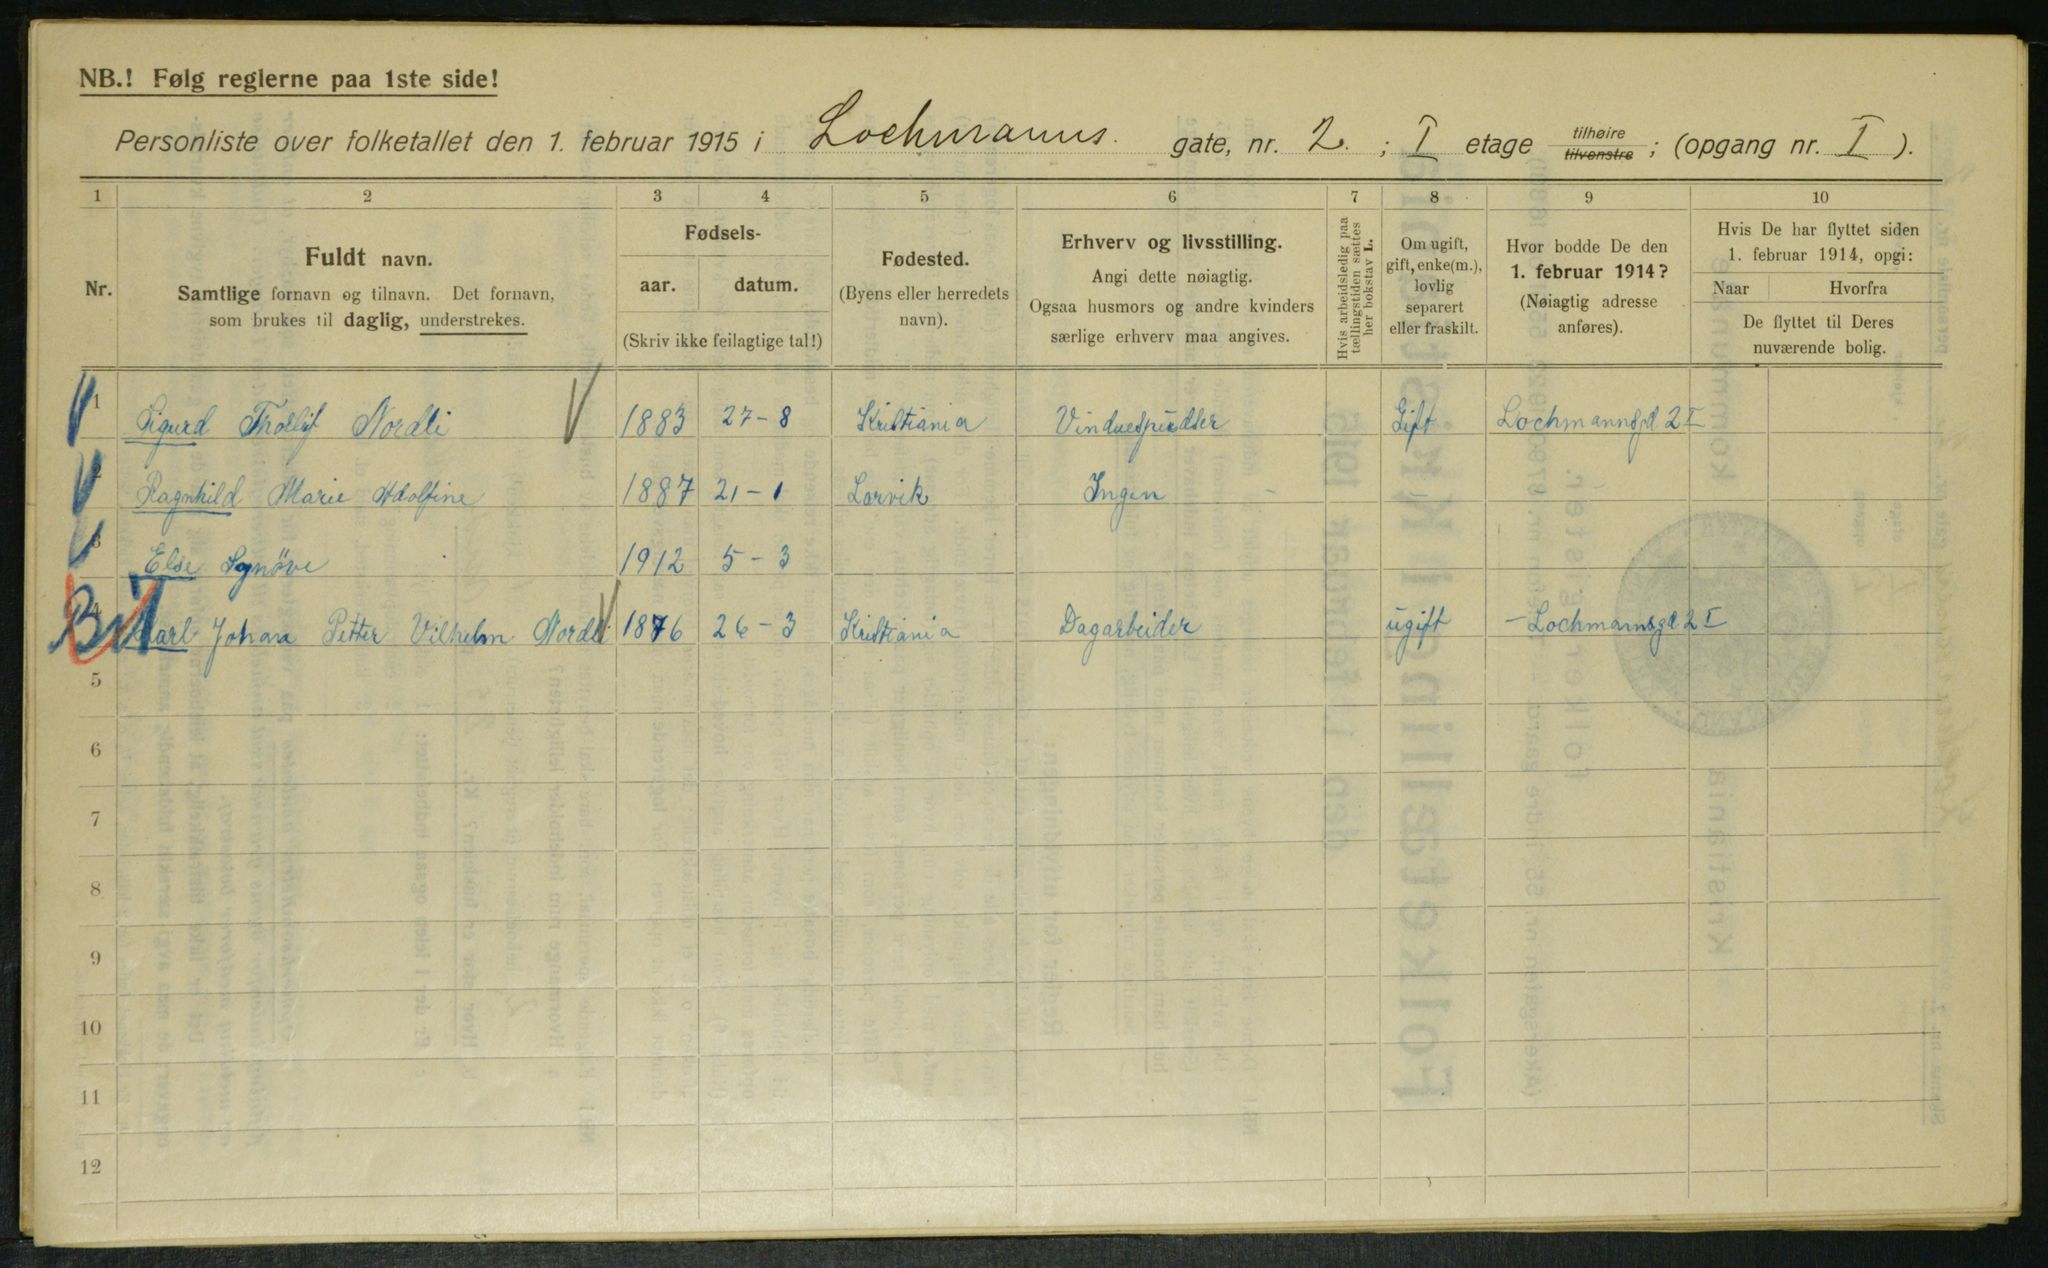 NB.! Følg reglerne paa 1ste side!
Personliste over folketallet den 1. februar 1915 i Lochmanns gate, nr. 2. ; I etage tilhøire tilvenstre ; (opgang nr. I ).
1 2 3 4 5 6 7 8 9 10
Nr.
Fuldt navn.
Samtlige fornavn og tilnavn. Det fornavn,
som brukes til daglig, understrekes.
Fødsels-
aar. datum.
(Skriv ikke feilagtige tal!)
Fødested.
(Byens eller herredets
navn).
Erhverv og livsstilling.
Angi dette nøiagtig.
Ogsaa husmors og andre kvinders
særlige erhverv maa angives.
Hvis arbeidsledig paa
tællingstiden sættes
her bokstav L.
Om ugift,
gift, enke(m.),
lovlig
separert
eller fraskilt.
Hvor bodde De den
1. februar 1914?
(Nøiagtig adresse
anføres).
Hvis De har flyttet siden
1. februar 1914, opgi:
Naar Hvorfra
De flyttet til Deres
nuværende bolig.
1 Sigurd Thorlif Nordli 1883 27-8 Kristiania Vinduespudser Gift Lochmannsgd 2 I
2 Ragnhild Marie Adolfine 1887 21-1 Larvik Ingen -
3 Else Synøve 1912 5-3
4 Karl Johan Petter Vilhelm Nordli 1876 26-3 Kristiania Dagarbeider ugift - Lochmannsgd 2 I
5
6
7
8
9
10
11
12